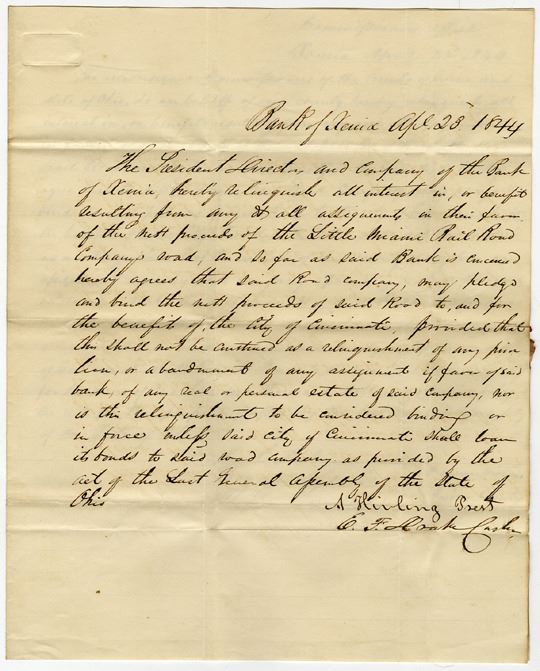 Bank of Xenia Apl. 23. 1844
The President Directors and Company of the Bank
of Xenia, hereby relinquish all interest in, or benefit
resulting from any & all assignments in their favor
of the nett proceeds of the Little Miami Rail Road
Companys road, and so far as said Bank is concerned
hereby agrees that said Road company, may pledge
and bind the nett proceeds of said Road to, and for
the benefit of, the City of Cincinnati, provided that
this shall not be construed as a relinquishment of any prior
lien, or abandonment of any assignment if favor of said
bank, of any real or personal estate of said company, nor
is this relinquishment to be considered binding or
in force unless said City of Cincinnati shall loan
its bonds to said road company as provided by the
act of the Last General Assembly of the State of
Ohio
A Hivling Prest
E. F. Drake Cashr